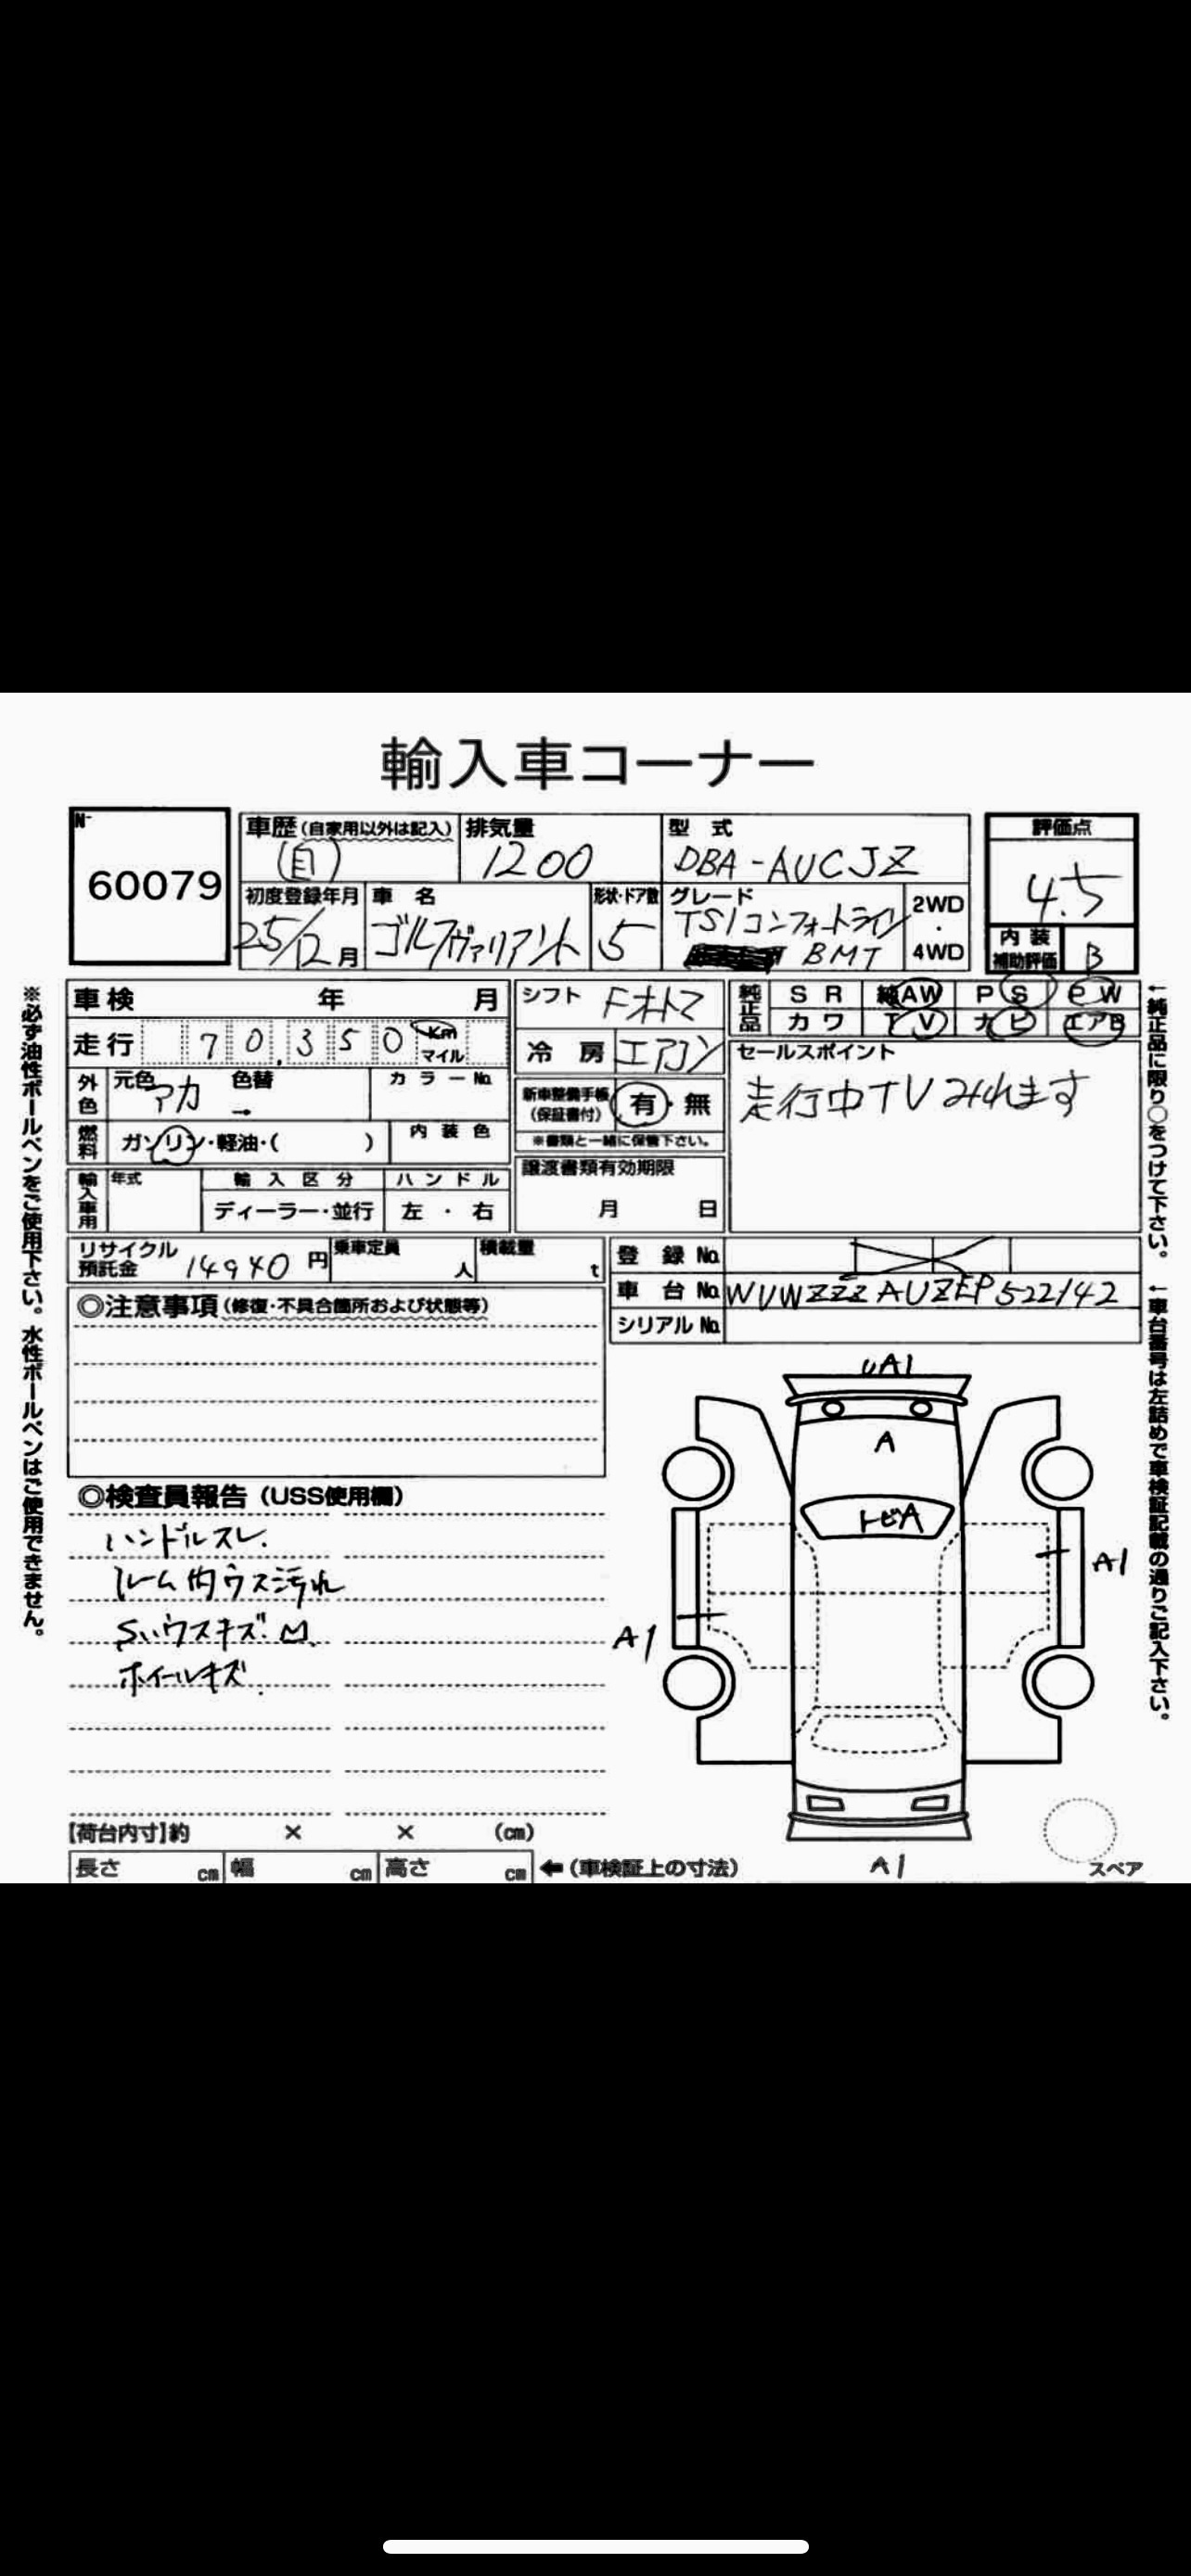 輸入車コーナー
N-
60079
車歴(自家用以外は記入) 排気量 型式 評価点
(自) 1200 DBA-AUCJZ 4.5
初度登録年月 車名 形状・ドア数 グレード 2WD・4WD 内装補助評価
25/12月 ゴルフヴァリアント 5 TSIコンフォートライン B
BMT
車検 年 月 シフト Fオートマ 純正品 SR AW PS PW
走行 70,350 Km マイル 冷房 エアコン カワ TV ナビ エアB
外色 元色 アカ 色替 → カラーNo. セールスポイント
新車整備手帳(保証書付) 有・無 走行中TVみれます
燃料 ガソリン・軽油・( ) 内装色 ※書類と一緒に保管下さい。
輸入車用 年式 輸入区分 ハンドル 譲渡書類有効期限
ディーラー・並行 左・右 月 日
リサイクル預託金 14940円 乗車定員 人 積載量 t 登録No.
車台No. WVWZZZAUZEP522142
シリアルNo.
◎注意事項(修復・不具合箇所および状態等)
◎検査員報告(USS使用欄)
ハンドルスレ.
ルーム内ウス汚れ
ホイールキズ.
A1
A
トビA
A1
A1
A1
【荷台内寸】約 × × (cm)
長さ cm 幅 cm 高さ cm ←(車検証上の寸法)
スペア
※必ず油性ボールペンをご使用下さい。水性ボールペンはご使用できません。
←純正品に限り○をつけて下さい。
←車台番号は左詰めで車検証記載の通りご記入下さい。